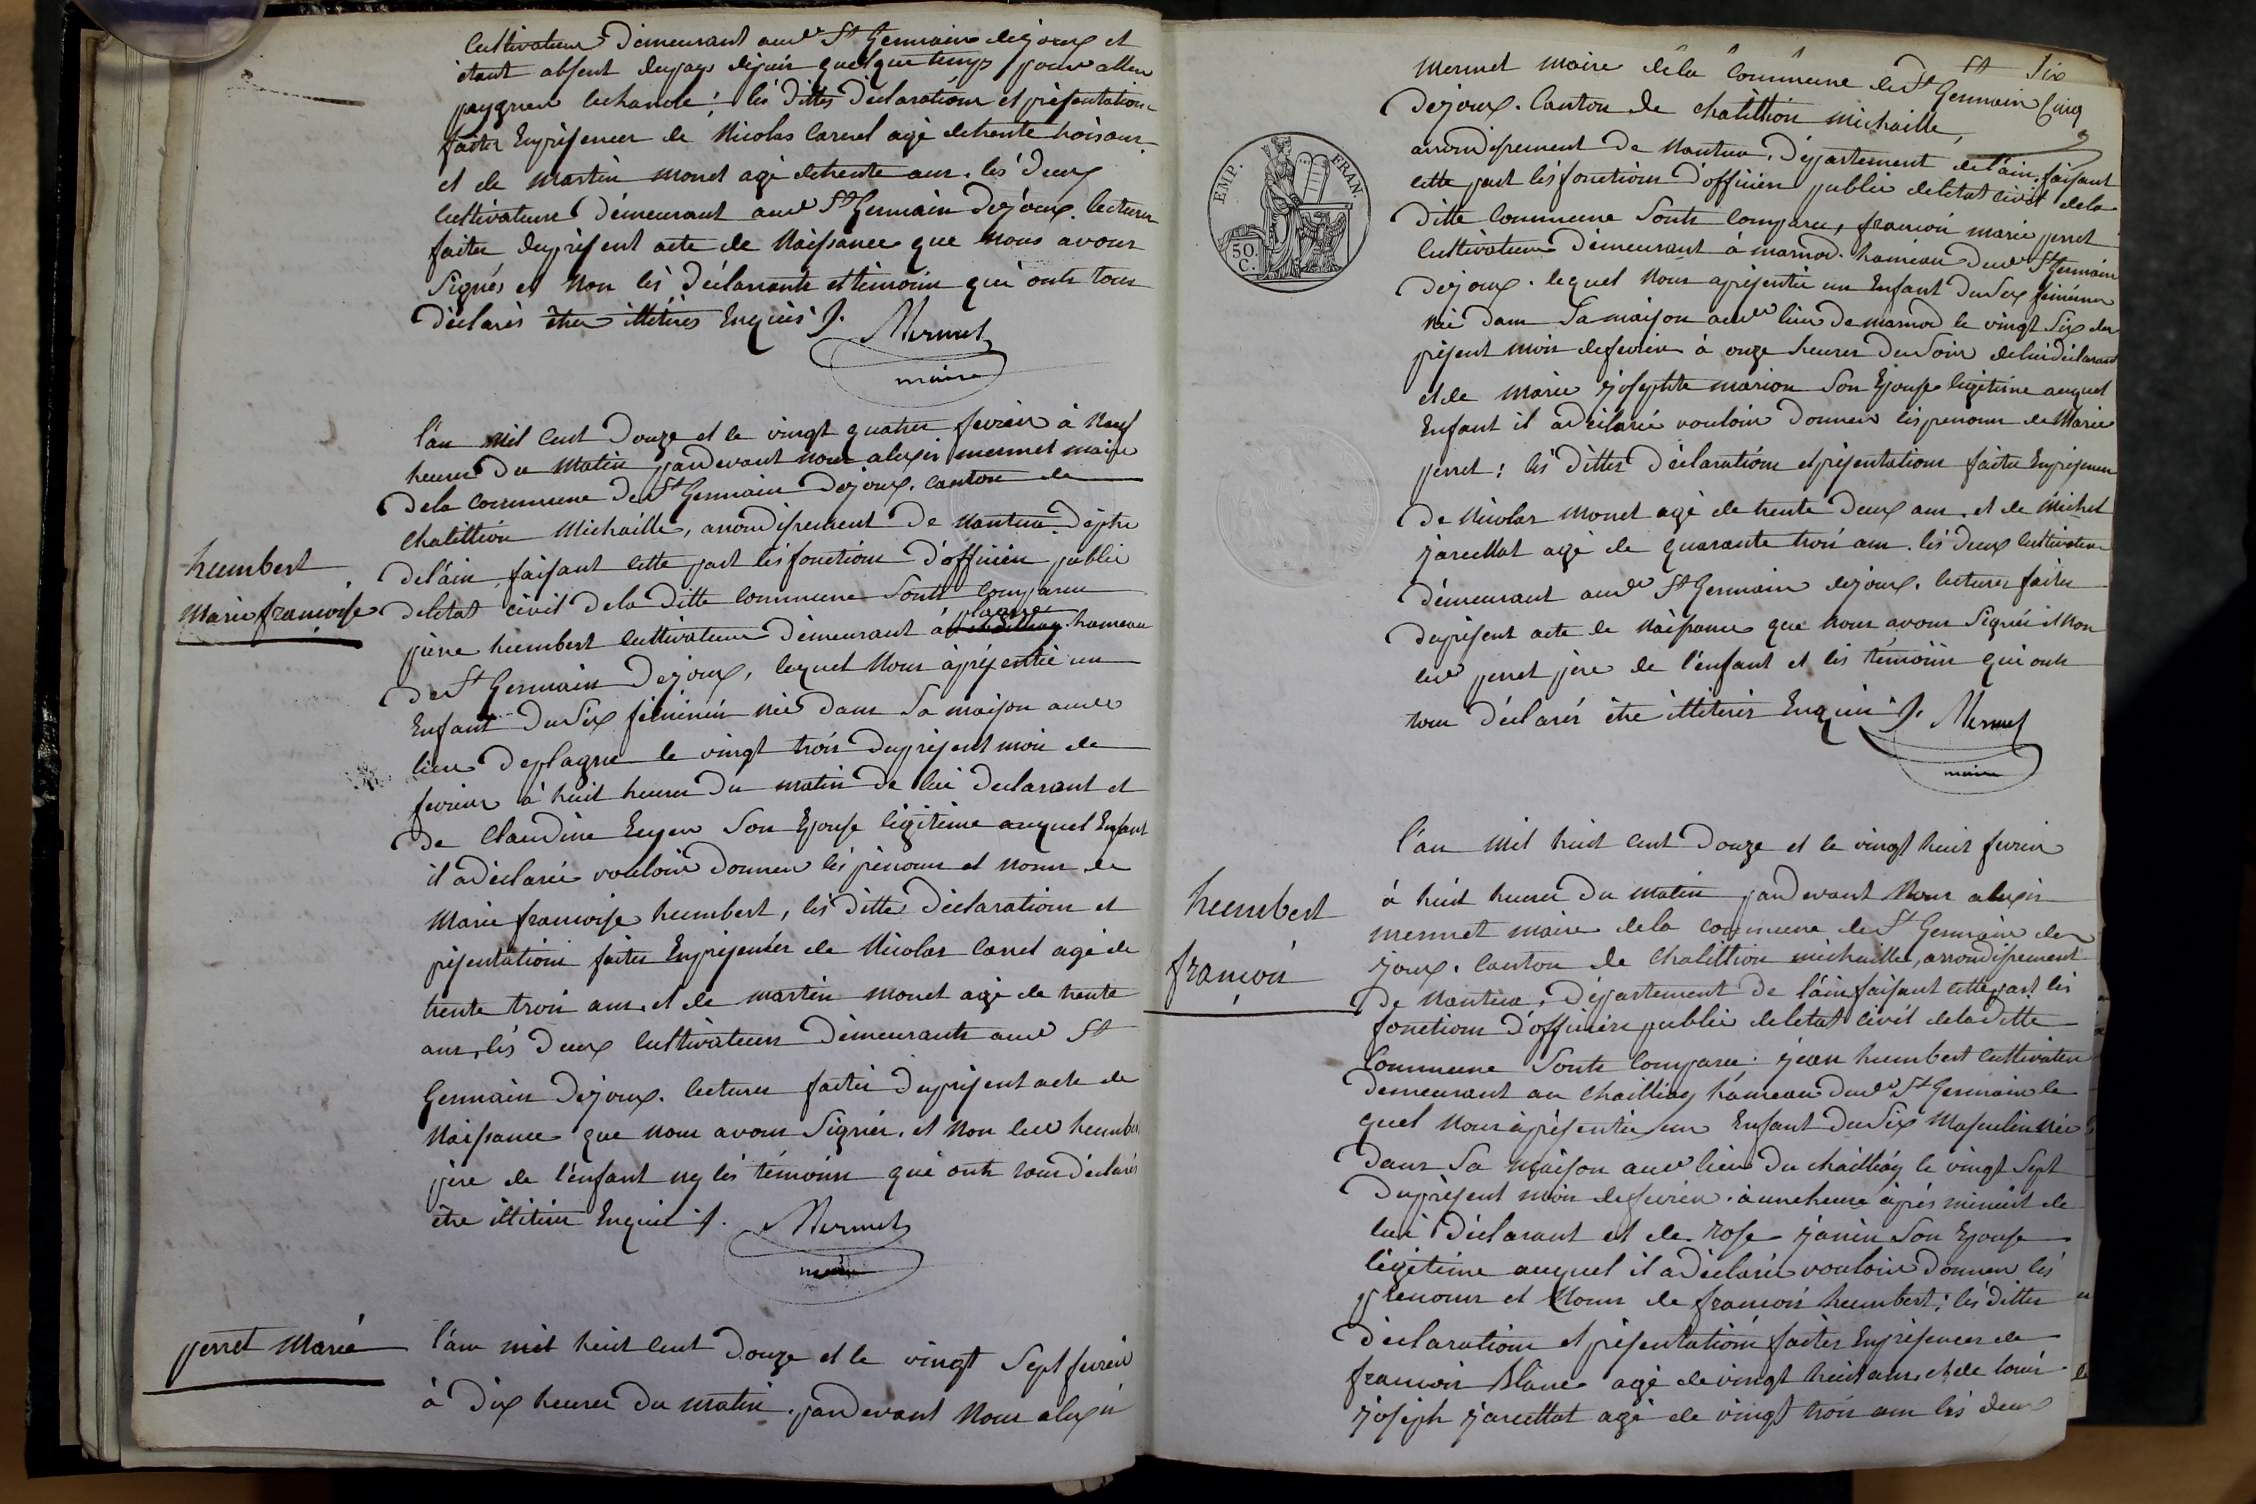 Cultivateur demeurant audt St Germain dejoux et
étant absent dupays dépuis quelque temps pour aller
peygner lechanvre; les dittes déclarations et présentations
faites Enprésence de Nicolas Carrel agé detrente trois ans
et de Martin monet agé detrente ans. lés deux
Cultivateurs démeurant audt St Germain Dejoux. lecture
faite duprésent acte de Naissance que Nous avons
Signés et Non lés déclarants et témoins qui onts tous
déclarés être illitérés Enquis ./.
Mermet
maire
l'an mil cent Douze et le vingt quatre fevrier à Neuf
heures du Matin pardevant nous alexis mermet maire
dela commune de St Germain Dejoux. canton de
Chatillion Michaille, arrondissement de Nantua Déptre
delain, faisant cette part lés fonctions d'officier public
humbert
Marie françoise
deletat civil dela ditte commune Sonts Comparu
plagne
piérre humbert cultivateur démeurant à hameau
de St Germain Dejoux, lequel Nous àpréséntée un
Enfant du Séx féminin née dans Sa maison audt
lieu deplagne le vingt trois duprésent mois de
fevrier à huit heures du matin de lui déclarant et
de Claudine Eugen Son Epouse légitime auquel Enfant
il adéclaré vouloir donner lés prénoms et Noms de
Marie françoise humbert, lés dittes déclarations et
présentations faites Enprésences de Nicolas Carrel agé de
trente trois ans, et de martin monet agé de trente
ans, lés deux Cultivateurs démeurants audt St
Germain Dejoux. lecture faites duprésent acte de
Naissance que nous avons Signés. et Non ledt humbert
père de l'enfant ny lés témoins qui onts tous déclarés
être illitérés Enquis ./.
Mermet
maire
perret Marie
l'an mil huit cent Douze et le vingt Sept fevrier
à Dix heures du matin. pardevant Nous alexis
Six
Mermet maire dela Commune de St Germain Cinq
Dejoux. Canton de chatillion michaille,
arrondissement de Nantua. Département delain, faisant
cette part lés fonctions d'officier public deletat civil dela
ditte Commune Sonts Comparu, françois marie perret
Cultivateur démeurant à marnod. hameau dudt St Germain
Dejoux. lequel Nous àpréséntée un Enfant du Sex féminin
née dans Sa maison audt lieu de marnod le vingt Six du
présent mois defevrier à onze heures du Soir delui déclarant
et de Marie josephte marion Son Epouse légitime auquel
Enfant il adéclaré vouloir donner lés prenoms de Marie
perret; lés dittes déclarations et présentations faites Enpréséence
de Nicolas monet agé de trente deux ans. et de Michel
jarcellat agé de quarante trois ans. lés deux cultivateurs
démeurant audt St Germain dejoux. lectures faites
duprésent acte de Naissance que nous avons Signés et Non
ledt perret père de l'enfant et lés témoins qui onts
tous déclarés être illitérés Enquis ./. Mermet
maire
EMP. FRAN.
50.
C.
l'an mil huit cent Douze et le vingt huit fevrier
à huit heures du matin pardevant Nous alexis
humbert
françois
mermet maire dela commune de St Germain de
joux. canton de Chatillion michaille, arrondissement
de Nantua. Département de lain, faisant cette part lés
fonctions d'officier public deletat civil dela ditte
Commune Sonts Comparu; jean humbert Cultivateur
demeurant au Chaillioy hameau dudt St Germain le
quel Nous àpréséntée un Enfant du Séx Masculin née
dans Sa maison audt lieu du chaillioy le vingt Sept
duprésent mois de fevrier. à une heure àprés minuit de
lui Déclarant et de rose janin Son Epouse
légitime auquel il adéclaré vouloir donner lés
prenoms et Noms de françois humbert; lés dittes
déclarations et présentations faites Enprésences de
françois Blanc agé de vingt huit ans, et de louis
joséph jarcellat agé de vingt trois ans lés deux